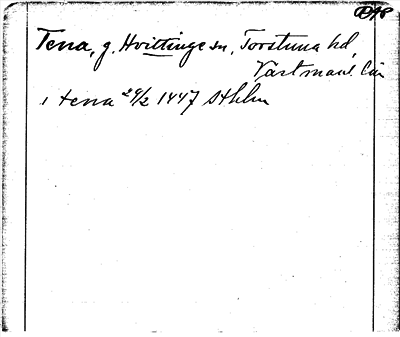 Tena, g. Hvittinge sn, Torstuna hd,
Västmanl. län
i tena 29/2 1447 Sthlm